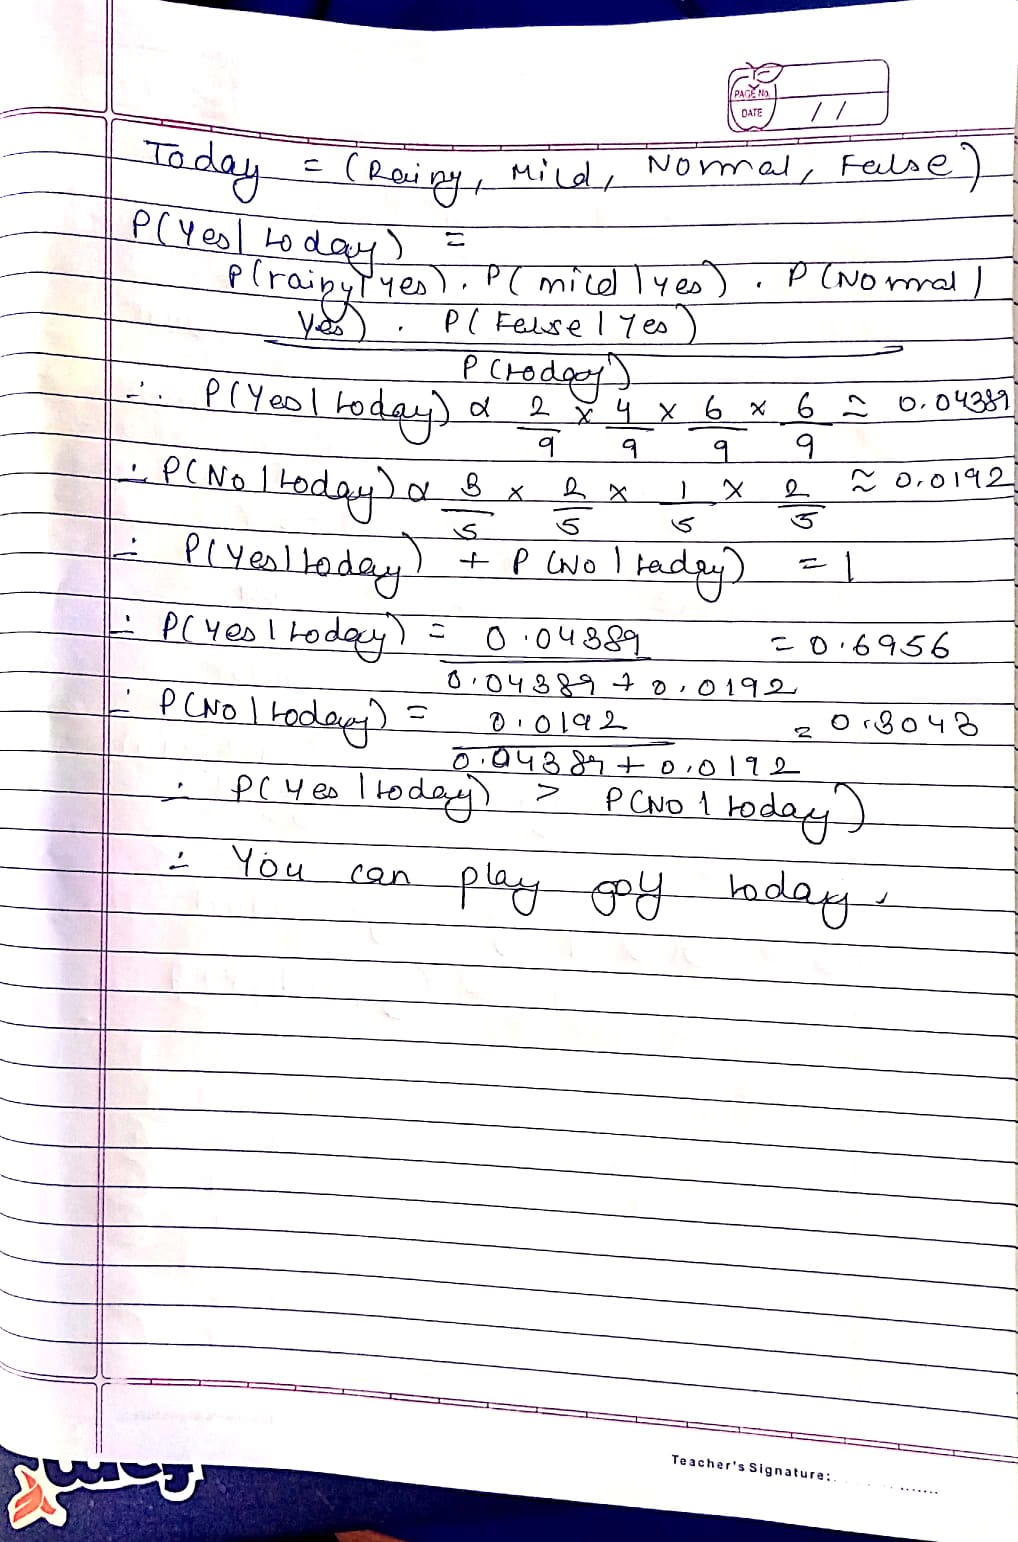 PAGE NO.
DATE / /
Today = (Rainy, Mild, Normal, False)
P(Yes| today) =
P(rainy|yes). P(mild|yes). P(Normal|
Yes). P(False|Yes)
P(today)
∴ P(Yes|today) α 2/9 x 4/9 x 6/9 x 6/9 ≈ 0.04389
∴ P(No|today) α 3/5 x 2/5 x 1/5 x 2/5 ≈ 0.0192
∴ P(Yes|today) + P(No|today) = 1
∴ P(Yes|today) = 0.04389 / 0.04389 + 0.0192 = 0.6956
∴ P(No|today) = 0.0192 / 0.04389 + 0.0192 = 0.3043
∴ P(Yes|today) > P(No|today)
∴ You can play golf today.
Teacher's Signature: